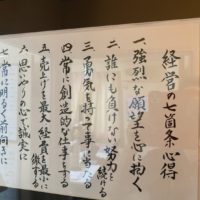 経営の七箇条心得
一、強烈な願望を心に抱く
二、誰にも負けない努力を続ける
三、勇気を持って事に当たる
四、常に創造的な仕事をする
五、売上げを最大 経費を最小に徹する
六、思いやりの心で誠実に
七、常に明るく前向きに